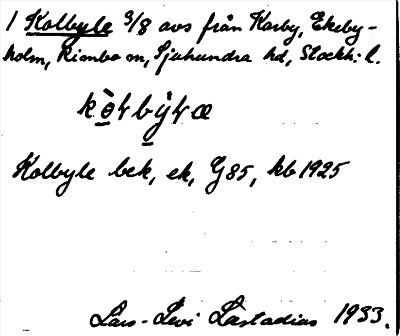 1 Kolbyle 3/8 avs från Karby, Ekeby-
holm, Rimbo sn, Sjuhundra hd, Stockh: l.
Kolbyle bek, ek, G85, kb 1925
Lars-Levi Læstadius 1933.